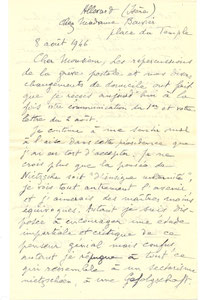 Allevard (Isère)
chez Madame
place du Temple
8 août 1946
Cher Monsieur, Les répercussions
de la grève postale et nos divers
changements de domicile, ont fait
que je reçois aujourd'hui à la
fois votre communication du 1er et votre
lettre du 6 août.
Je continue à me sentir mal
à l'aise dans cette présidence que
j'ai eu tort d'accepter. Je ne
crois plus que la pensée de
Nietzsche soit
je vois tout autrement l'avenir
et j'aimerais des maîtres moins
équivoques. Autant je suis dis-
posé à encourager une étude
impartiale et critique de ce
penseur génial mais confus,
autant je répugne à tout ce
qui ressemble à un sectarisme
nietzschéen, à une Gefolgschaft